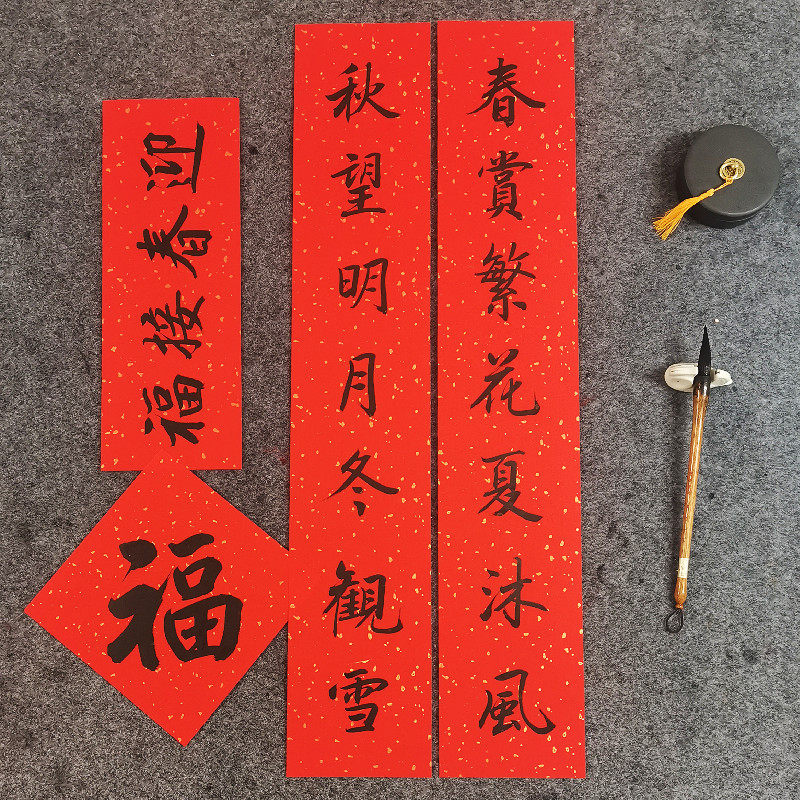 春賞繁花夏沐風
秋望明月冬観雪
迎春接福
福